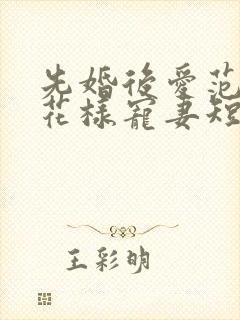 先婚後愛范
花樣寵妻短
王彩明